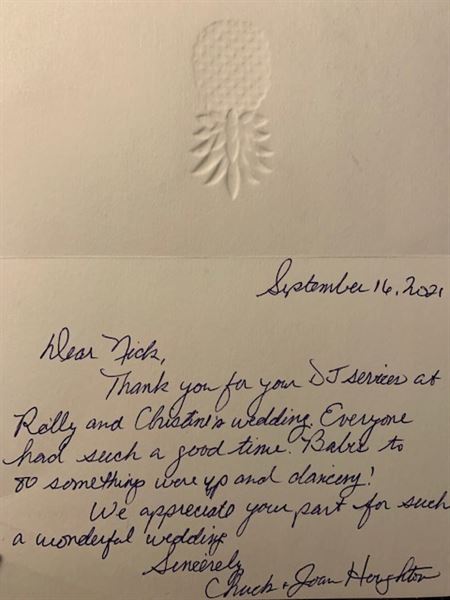 September 16, 2021
Dear Nick,
Thank you for your DJ services at
Reilly and Christine's wedding. Everyone
had such a good time. Babies to
80 somethings were up and dancing!
We appreciate your part for such
a wonderful wedding
Sincerely,
Chuck + Joan Houghton